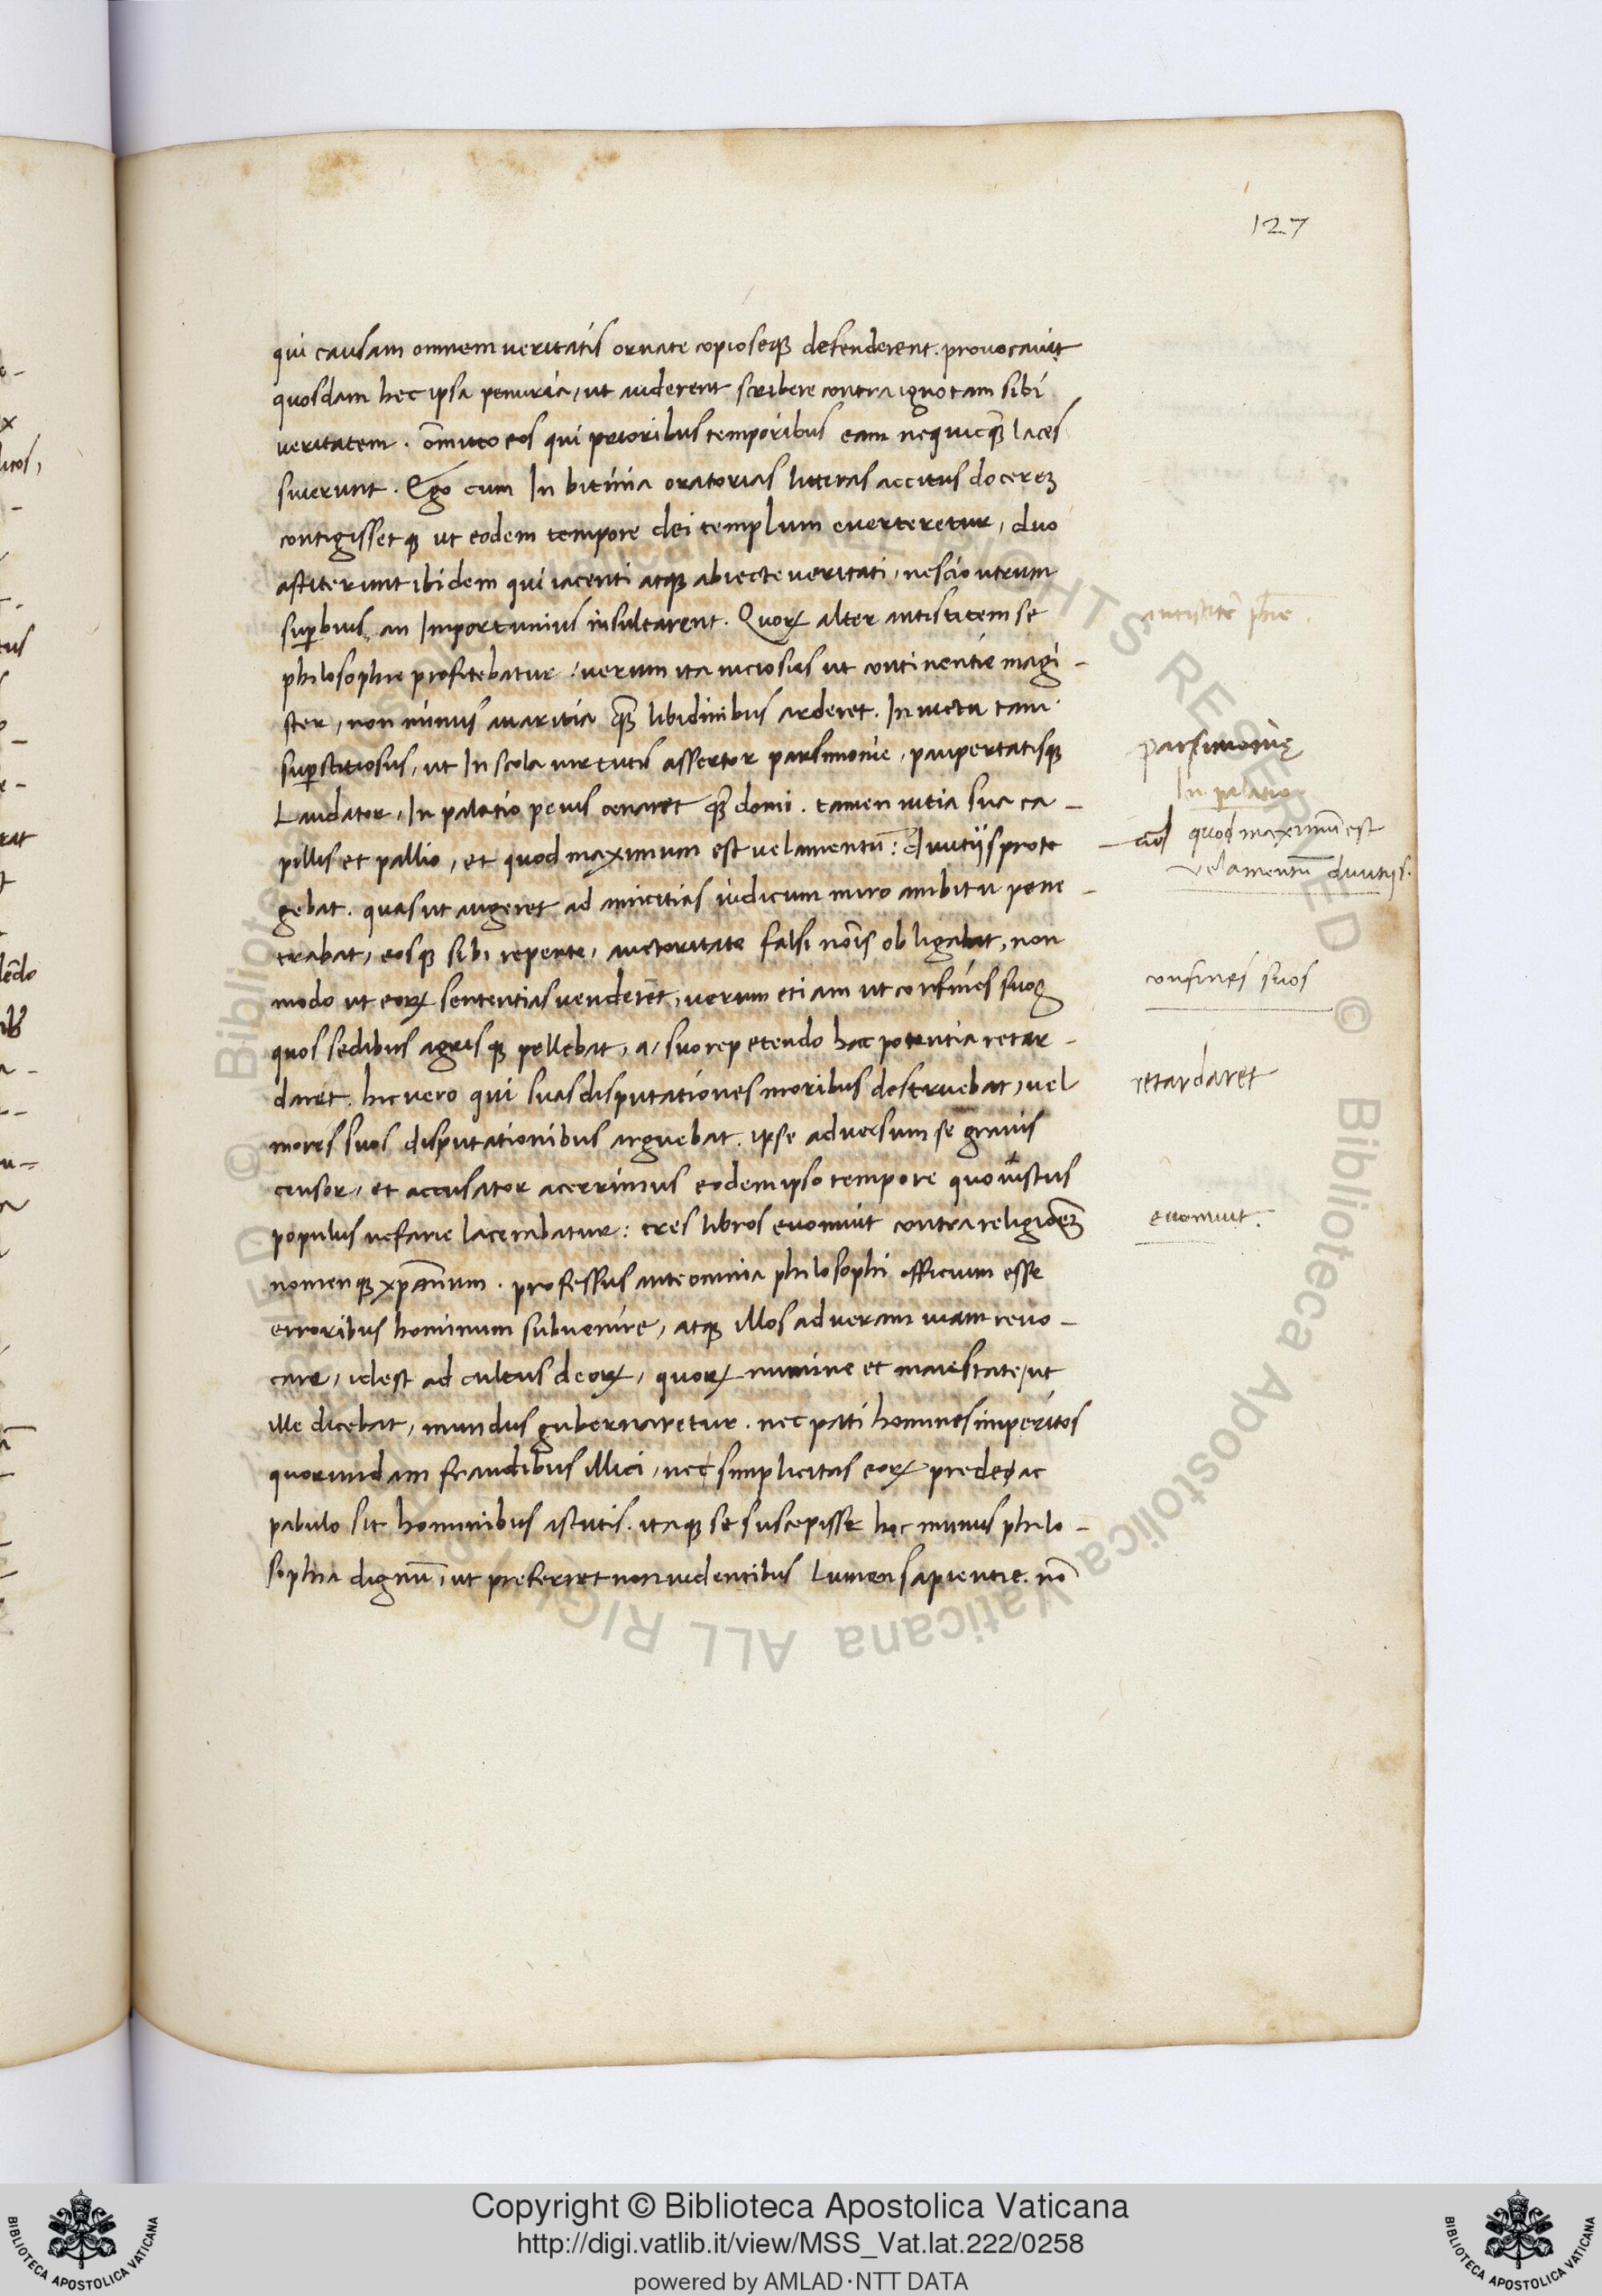 127
qui causam omnem veritatis ornate copioseqꝫ defenderent. provocavit
quosdam hec ipsa penuria, ut auderent scribere contra ignotam sibi
veritatem. omitto eos qui prioribus temporibus eam nequicq̃ laces
siverunt. Ego cum In bitinia oratorias litteras accitus docereꝫ
contigissetqꝫ ut eodem tempore dei templum everteretur, duo
astiterunt ibidem qui iacenti atqꝫ abiecte veritati, nescio utrum
suꝑbius, an Importunius insultarent. Quoꝝ alter antistitem se
philosophie profitebatur, verum ita viciosus ut continentie magi-
ster, non minus avaritia q̃ libidinibus arderet. In victu tam
suꝑstitiosus, ut In scola virtutis assertor parsimonie, paupertatisqꝫ
Laudator, In palatio peius cenaret q̃ domi. tamen vitia sua ca-
pillis et pallio, et quod maximum est velamentū: divitijs prote
gebat. quas ut augeret ad amicitias iudicum miro ambitu pene-
trabat, eosqꝫ sibi repente, auctoritate falsi nōis obligabat, non
modo ut eoꝝ sententias venderet, verum etiam ut confines suos
quos sedibus agrisqꝫ pellebat, a, suo repetendo hac potentia retar-
daret. hic vero qui suas disputationes moribus destruebat, vel
mores suos disputationibus arguebat. ipse adversum se gravis
censor, et accusator acerrimus eodem ipso tempore quo iustus
populus nefarie lacerabatur: tres libros evomuit contra religioneꝫ
nomenqꝫ xp̄ianum. professus ante omnia philosophi officium esse
erroribus hominum subvenire, atqꝫ illos ad veram viam revo-
care, idest ad cultus deoꝝ, quoꝝ numine et maiestate, ut
ille dicebat, mundus gubernaretur. nec pati homines imperitos
quorundam fraudibus illici, nec simplicitas eoꝝ prede ac
pabulo sit hominibus astutis. itaqꝫ se suscepisse hoc munus philo-
sophia dignū, ut preferret non videntibus Lumen sapientie. nō
antistitē phie.
parsimonię
In palatio
quod maximū est
velamentū divitijs.
confines suos
retardaret
evomuit.
Copyright © Biblioteca Apostolica Vaticana
http://digi.vatlib.it/view/MSS_Vat.lat.222/0258
powered by AMLAD·NTT DATA
BIBLIOTECA APOSTOLICA VATICANA
BIBLIOTECA APOSTOLICA VATICANA